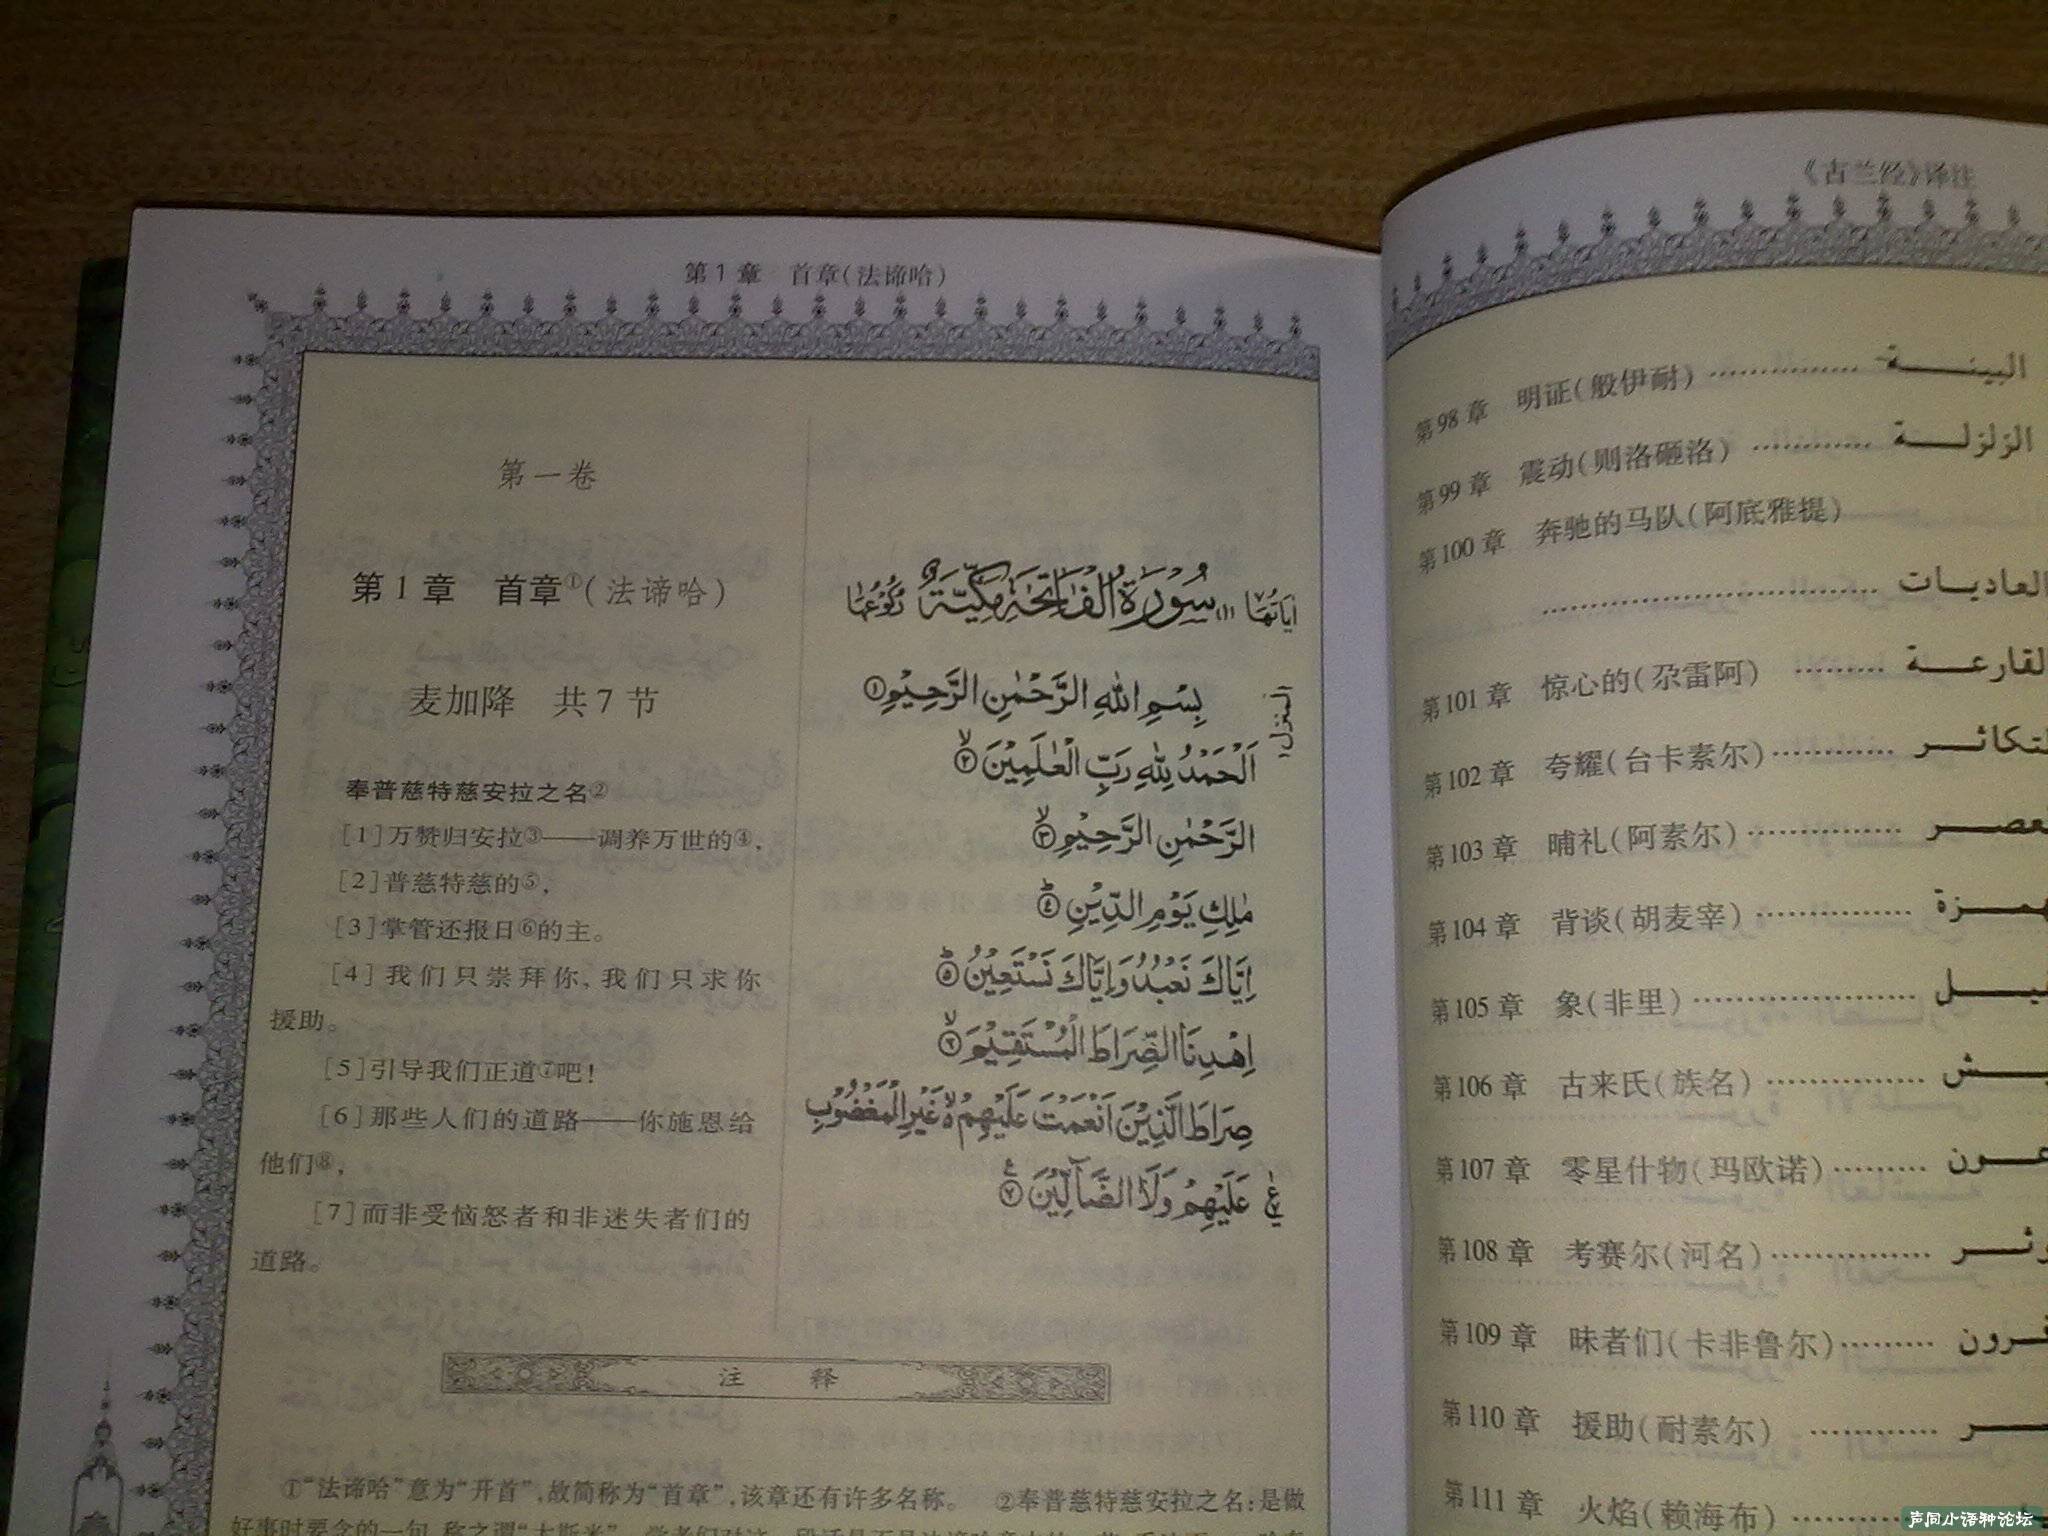 第1章 首章(法谛哈)
第一卷
第1章 首章①(法谛哈)
麦加降 共7节
奉普慈特慈安拉之名②
[1]万赞归安拉③——调养万世的④,
[2]普慈特慈的⑤,
[3]掌管还报日⑥的主。
[4]我们只崇拜你,我们只求你
援助。
[5]引导我们正道⑦吧!
[6]那些人们的道路——你施恩给
他们⑧,
[7]而非受恼怒者和非迷失者们的
道路。
اٰيَاتُهَا ٧ (١) سُوْرَةُ الْفَاتِحَةِ مَكِّيَّةٌ رُكُوْعُهَا
بِسْمِ اللهِ الرَّحْمٰنِ الرَّحِيْمِ ①
اَلْحَمْدُ لِلّٰهِ رَبِّ الْعٰلَمِيْنَ ②
الرَّحْمٰنِ الرَّحِيْمِ ③
مٰلِكِ يَوْمِ الدِّيْنِ ④
اِيَّاكَ نَعْبُدُ وَاِيَّاكَ نَسْتَعِيْنُ ⑤
اِهْدِنَا الصِّرَاطَ الْمُسْتَقِيْمَ ⑥
صِرَاطَ الَّذِيْنَ اَنْعَمْتَ عَلَيْهِمْ غَيْرِ الْمَغْضُوْبِ
عَلَيْهِمْ وَلَا الضَّآلِّيْنَ ⑦
注 释
①“法谛哈”意为“开首”,故简称为“首章”,该章还有许多名称。 ②奉普慈特慈安拉之名:是做
好事时要念的一句
《古兰经》译注
第98章 明证(般伊耐) البينة
第99章 震动(则洛砸洛) الزلزلة
第100章 奔驰的马队(阿底雅提)
العاديات
第101章 惊心的(尕雷阿) القارعة
第102章 夸耀(台卡素尔) لتكاثر
第103章 晡礼(阿素尔) عصر
第104章 背谈(胡麦宰) همزة
第105章 象(非里) يل
第106章 古来氏(族名) يش
第107章 零星什物(玛欧诺) عون
第108章 考赛尔(河名) وثر
第109章 昧者们(卡非鲁尔) فرون
第110章 援助(耐素尔) ر
第111章 火焰(赖海布)
声同小语种论坛